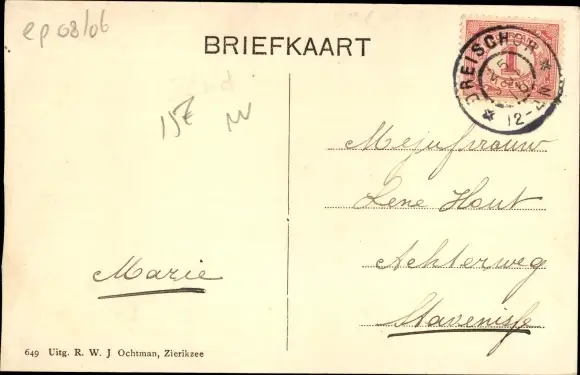 ep 08/06
BRIEFKAART
DREISCHOR
12-
1
15€
Mejufvrouw
Lene Hout
Achterweg
Stavenisse
Marie
649 Uitg. R. W. J Ochtman, Zierikzee